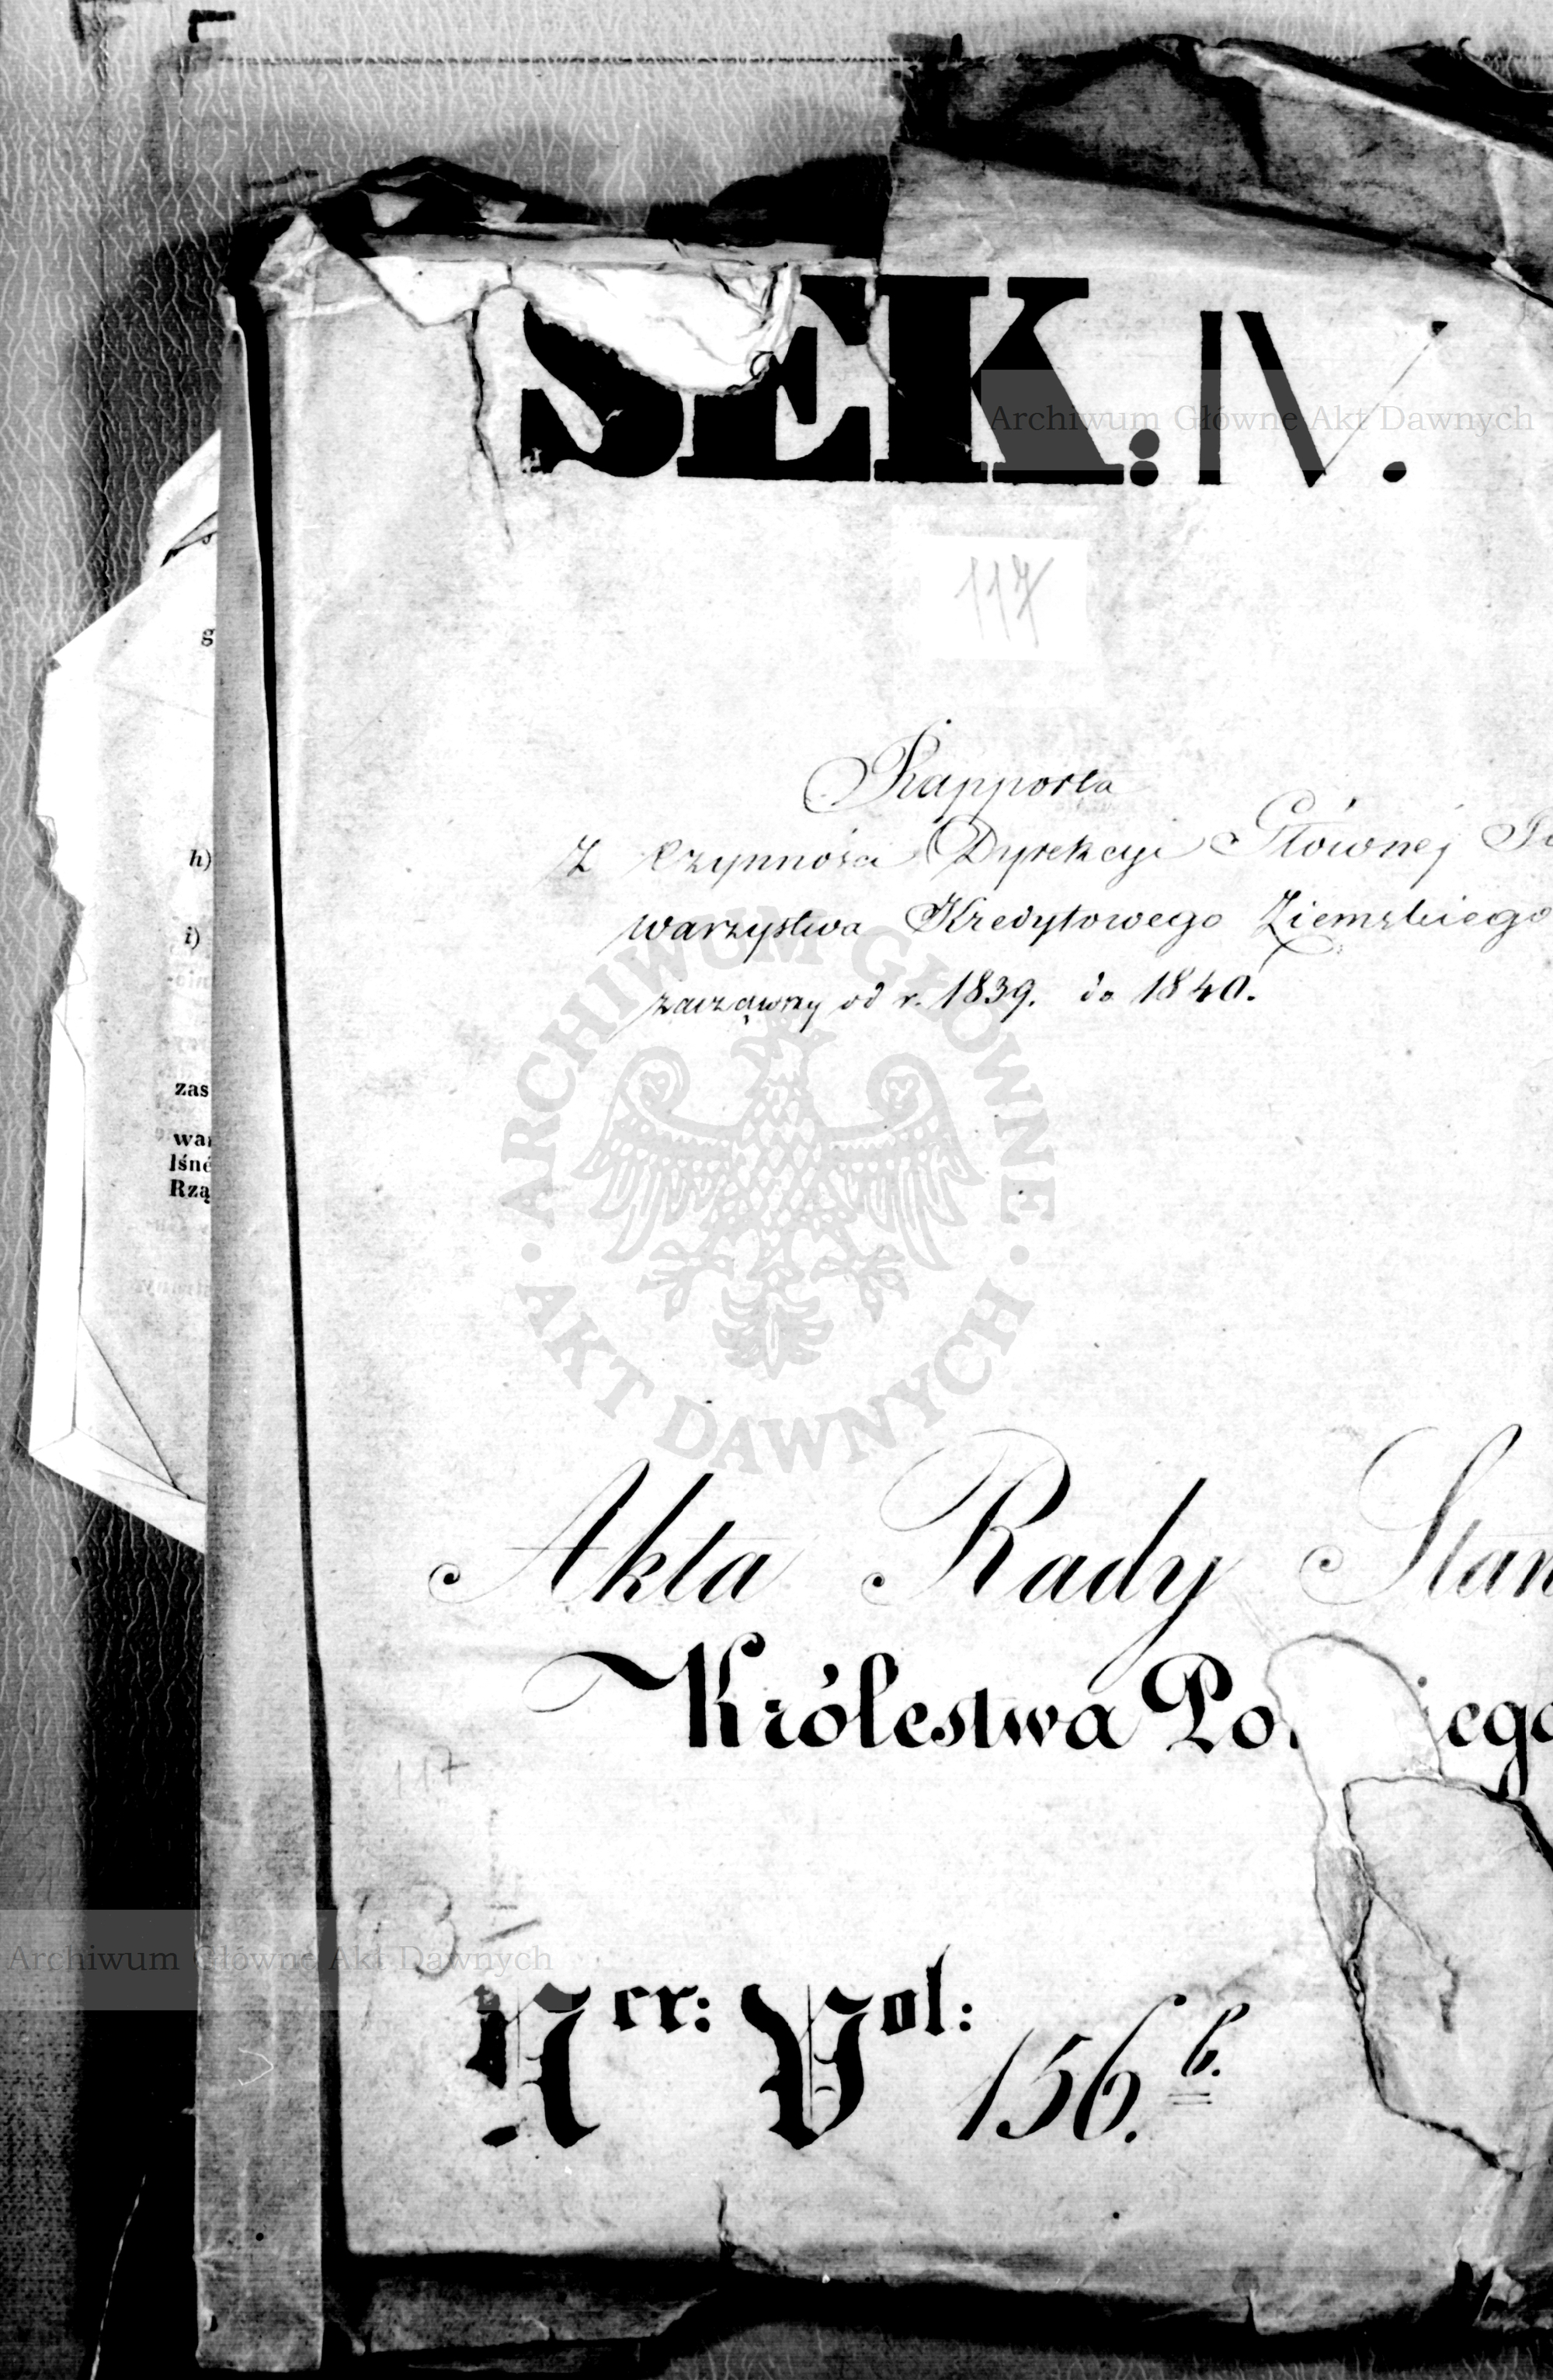 SEK: IV.
117
Rapporta
z Czynności Dyrekcyi Głównej To
warzystwa Kredytowego Ziemskiego
zacząwszy od r. 1839. do 1840.
Akta Rady Stan
Królestwa Po iego
117
Ner: Vol: 156.b.
g
h)
i)
zas
wa
Iśné
Rzą
Archiwum Główne Akt Dawnych
ARCHIWUM GŁÓWNE AKT DAWNYCH
Archiwum Główne Akt Dawnych